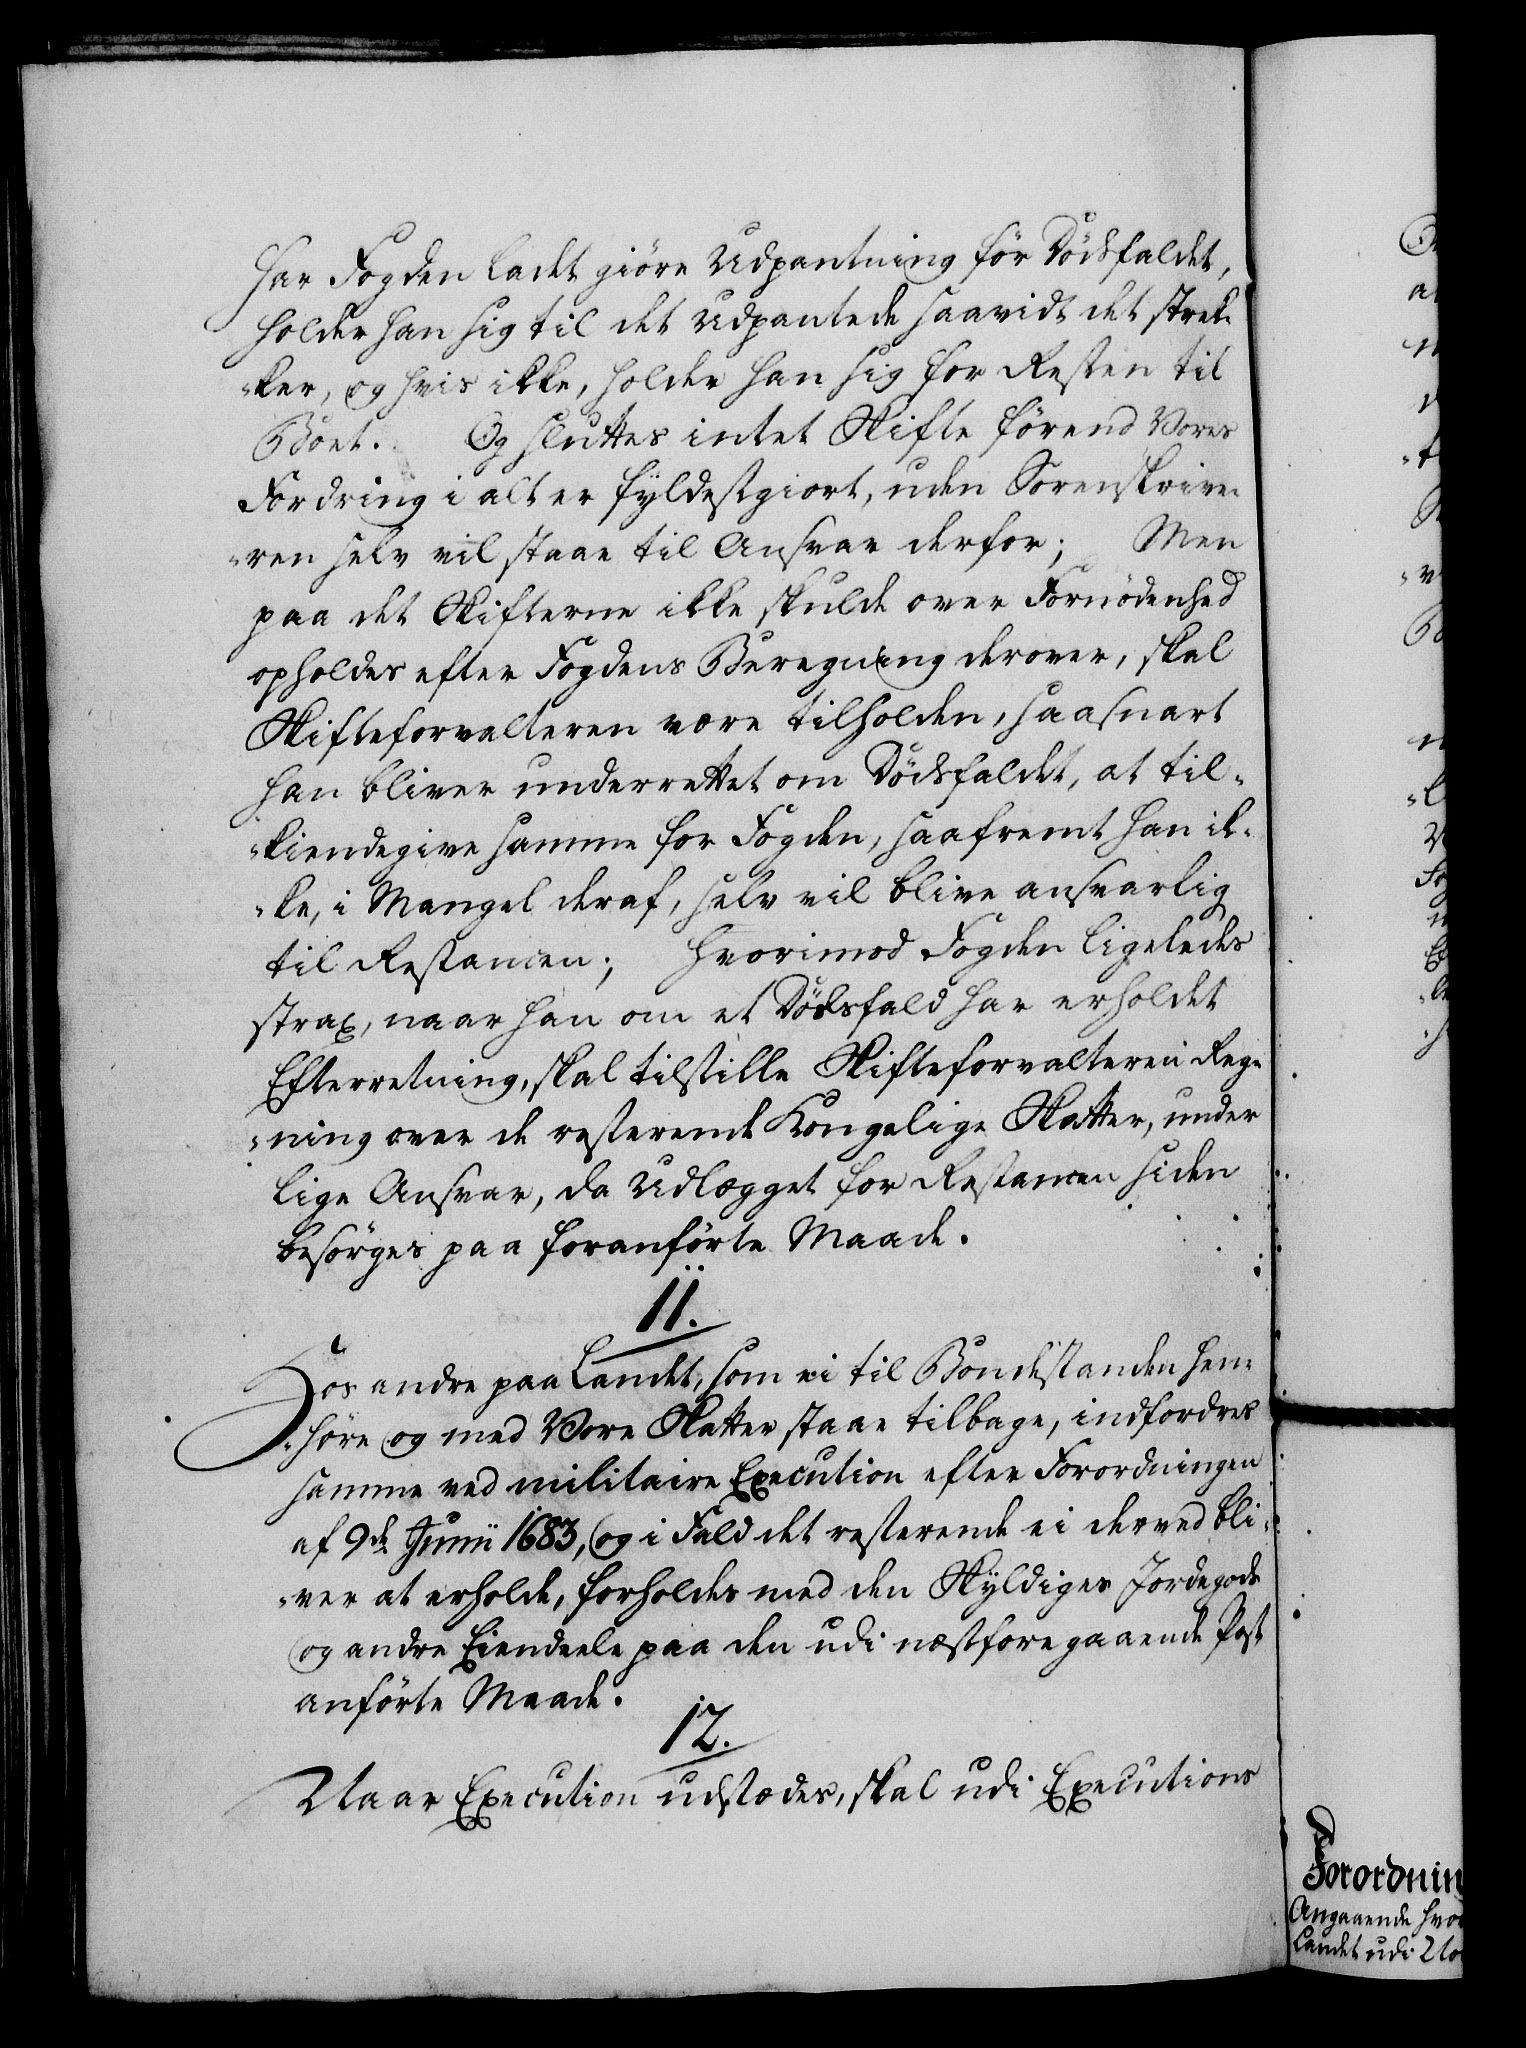 har Fogden ladt giöre Udpantning för Dödsfaldet,
holder han sig til det Udpantede saavidt det strek-
-ker, og hvis ikke, holder han sig for Resten til
Boet. Og sluttes intet Skifte förend Vores
Fordring i alt er fyldestgiort, uden Sorenskrive-
-ren selv vil staae til Ansvar derfor; Men
paa det Skifterne ikke skulde over Fornödenhed
opholdes efter Fogdens Beregning derover, skal
Skifteforvalteren være tilholden, saasnart
han bliver underrettet om Dödsfaldet, at til-
-kiendegive samme for Fogden, saafremt han ik-
-ke, i Mangel deraf, selv vil blive ansvarlig
til Restancen; hvorimod Fogden ligeledes
strax, naar han om et Dödsfald har erholdet
Efterretning, skal tilstille Skifteforvalteren Reg-
-ning over de resterende Kongelige Skatter, under
lige Ansvar, da Udlægget for Restancen siden
besörges paa foranförte Maade.
11.
Hos andre paa Landet, som ei til Bondestanden hen-
-höre og med Vore Skatter staae tilbage, indfordres
samme ved militaire Execution efter Forordningen
af 9de Junii 1683, og i Fald det resterende ei derved bli-
-ver at erholde, forholdes med den Skyldiges Jordegods
og andre Eiendeele paa den udi næstforegaaende Post
anförte Maade.
12.
Naar Execution udstædes, skal udi Executions
Forordnin
Angaaende hvo
Landet udi No